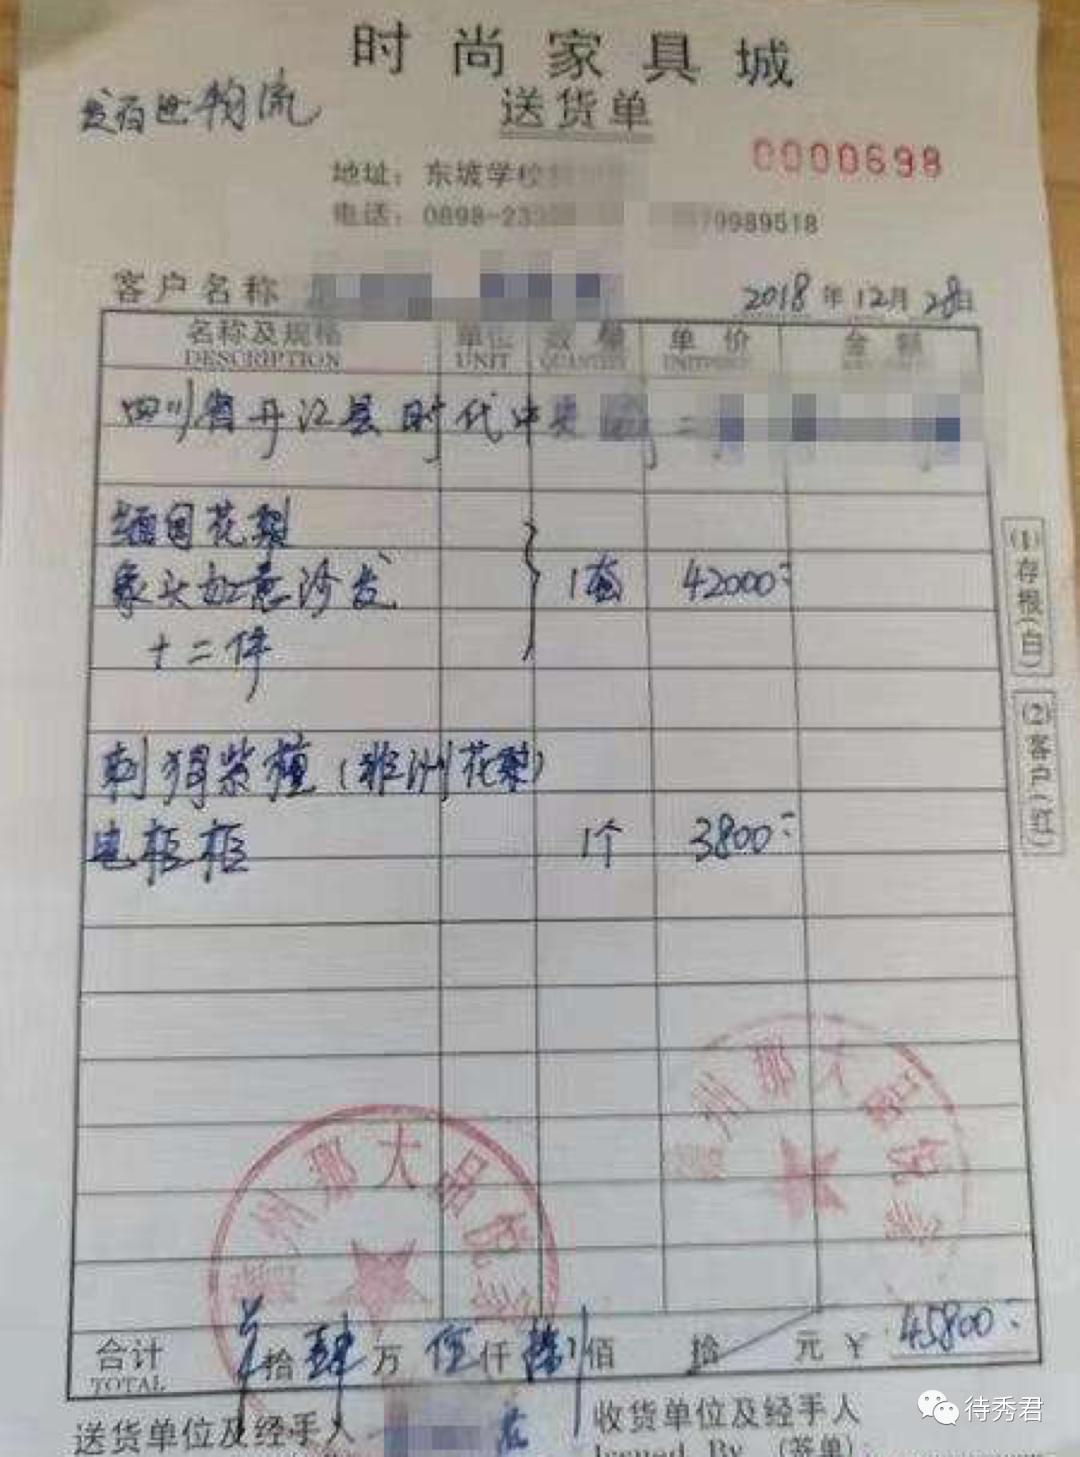 时尚家具城
发百世物流
送货单
0000698
地址：东坡学校
电话：0898-23 79989518
客户名称
2018年12月28日
名称及规格 单位 数量 单价 金额
DESCRIPTION UNIT QUANTITY UNITPRICE
四川省丹江县时代中央 二
缅国花梨
象头如意沙发 1套 42000
十二件
刺猬紫檀(非洲花梨)
电柜柜 1个 3800
(1)存根(白) (2)客户(红)
州那大
州那大品悦
合计 拾肆万伍仟捌佰 拾 元 ¥ 45800
TOTAL
送货单位及经手人
收货单位及经手人
Issued By (签单)
待秀君